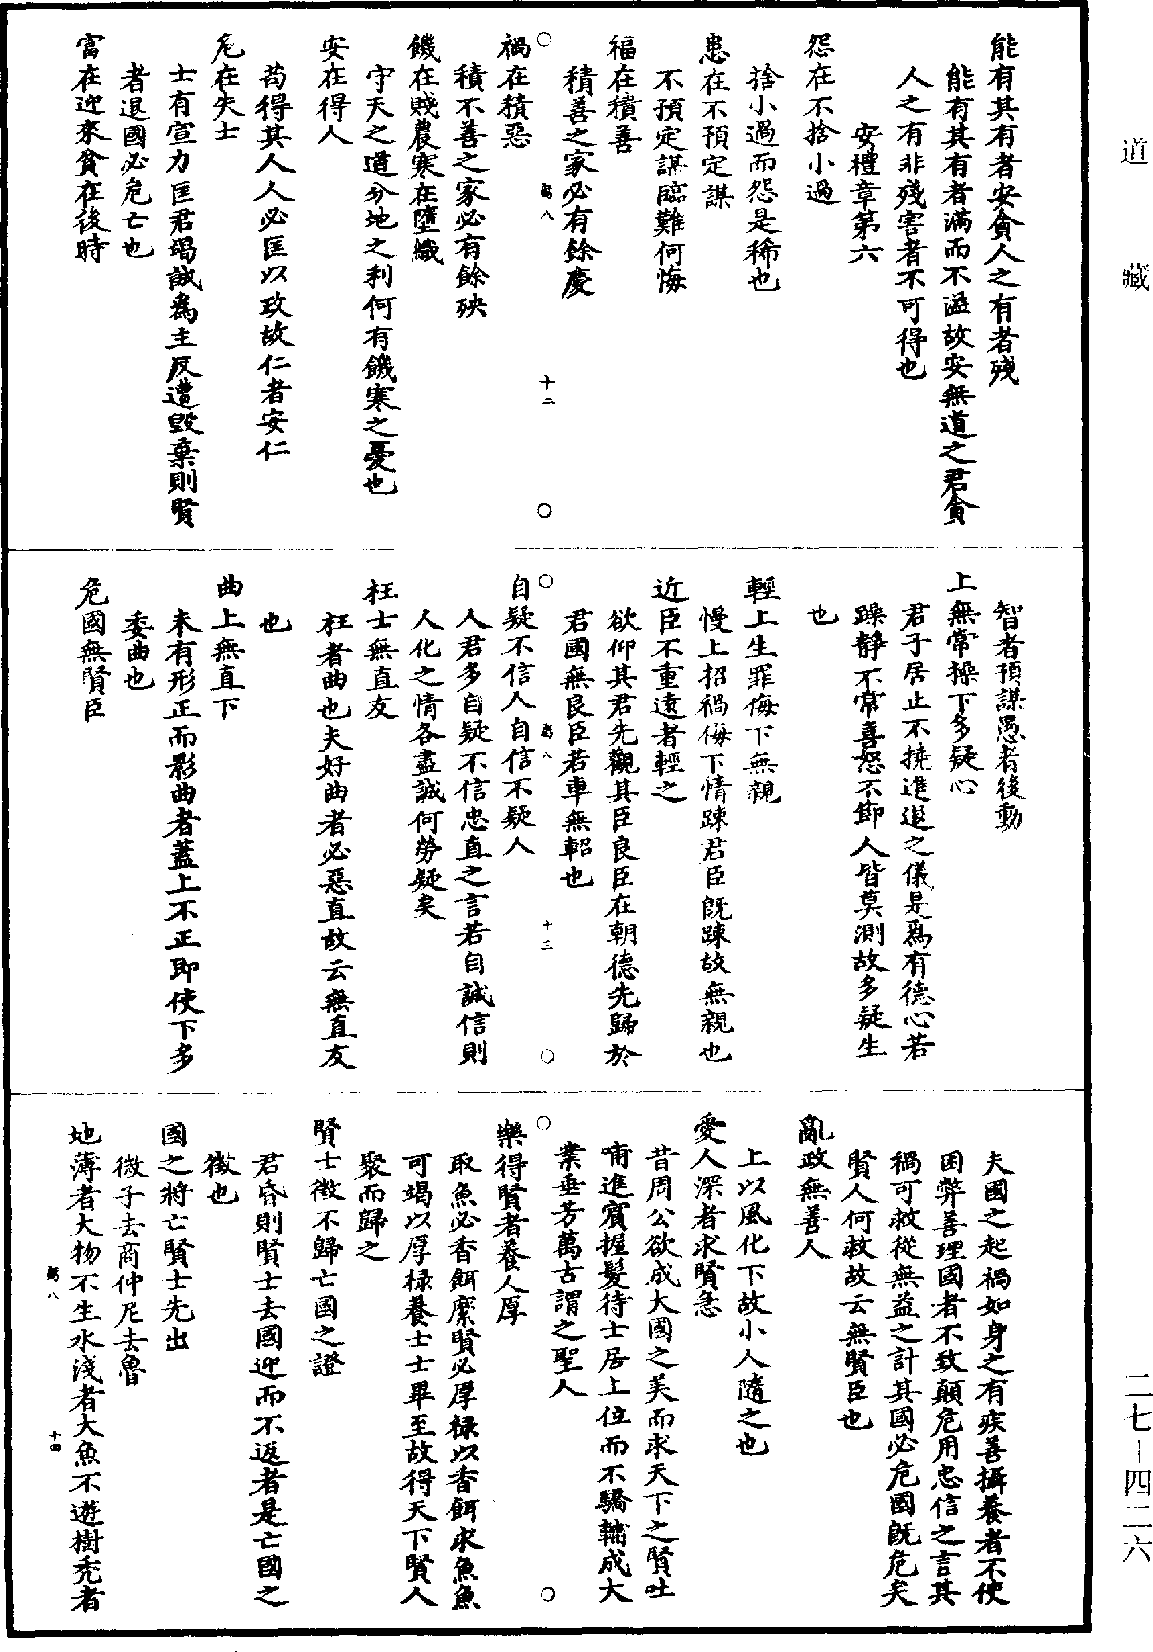 能有其有者安貪人之有者殘
能有其有者滿而不溢故安無道之君貪
人之有非殘害者不可得也
安禮章第六
怨在不捨小過
捨小過而怨是稀也
患在不預定謀
不預定謀臨難何悔
福在積善
積善之家必有餘慶
禍在積惡
積不善之家必有餘殃
饑在賤農寒在墮織
守天之道分地之利何有饑寒之憂也
安在得人
苟得其人人必匡以政故仁者安仁
危在失士
士有宣力匡君竭誠為主反遭毀棄則賢
者退國必危亡也
富在迎來貧在後時
智者預謀愚者後動
上無常操下多疑心
君子居止不撓進退之儀是為有德心若
躁靜不常喜怒不節人皆莫測故多疑生
也
輕上生罪侮下無親
慢上招禍侮下情踈君臣既踈故無親也
近臣不重遠者輕之
欲仰其君先觀其臣良臣在朝德先歸於
君國無良臣若車無軺也
自疑不信人自信不疑人
人君多自疑不信忠直之言若自誠信則
人化之情各盡誠何勞疑矣
枉士無直友
枉者曲也夫好曲者必惡直故云無直友
也
曲上無直下
未有形正而影曲者蓋上不正即使下多
委曲也
危國無賢臣
夫國之起禍如身之有疾善攝養者不使
困弊善理國者不致顛危用忠信之言其
禍可救從無益之計其國必危國既危矣
賢人何救故云無賢臣也
亂政無善人
上以風化下故小人隨之也
愛人深者求賢急
昔周公欲成大國之美而求天下之賢吐
哺進賓握髮待士居上位而不驕輔成大
業垂芳萬古謂之聖人
樂得賢者養人厚
取魚必香餌縻賢必厚祿以香餌求魚魚
可竭以厚祿養士士畢至故得天下賢人
聚而歸之
賢士徵不歸亡國之證
君昏則賢士去國迎而不返者是亡國之
徵也
國之將亡賢士先出
微子去商仲尼去魯
地薄者大物不生水淺者大魚不遊樹禿者
十二
十三
十四
道藏
二七－四二六